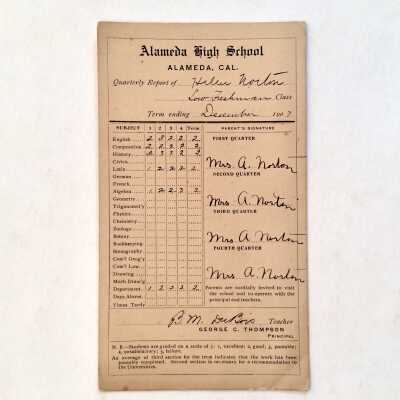 Alameda High School
ALAMEDA, CAL.
Quarterly Report of Helen Norton
Low Freshman Class
Term ending December 1907
SUBJECT 1 2 3 4 Term
PARENT'S SIGNATURE
English 2 3 2 2 2
FIRST QUARTER
Composition 2 2 3 2 2
History 3 3 2 2
Mrs. A. Norton
Civics
Latin 1 2 2 2 2
SECOND QUARTER
German
French
Algebra 1 2 2 3 2
Mrs. A. Norton
Geometry
Trigonomet'y
THIRD QUARTER
Physics
Chemistry
Zoology
Mrs. A Norton
Botany
Bookkeeping
FOURTH QUARTER
Stenography
Com'l Geog'y
Com'l Law
Mrs. A. Norton
Drawing
Mech Drawi'g
Deportment 1 2 2 2 2
Parents are cordially invited to visit
Days Absent
the school and co-operate with the
Times Tardy
principal and teachers.
B. M. Teacher
GEORGE C. THOMPSON
PRINCIPAL
N. B.—Students are graded on a scale of 5: 1, excellent; 2, good; 3, passable;
4, unsatisfactory; 5, failure.
An average of third section for the term indicates that the work has been
passably completed. Second section is necessary for a recommendation to
the Universities.